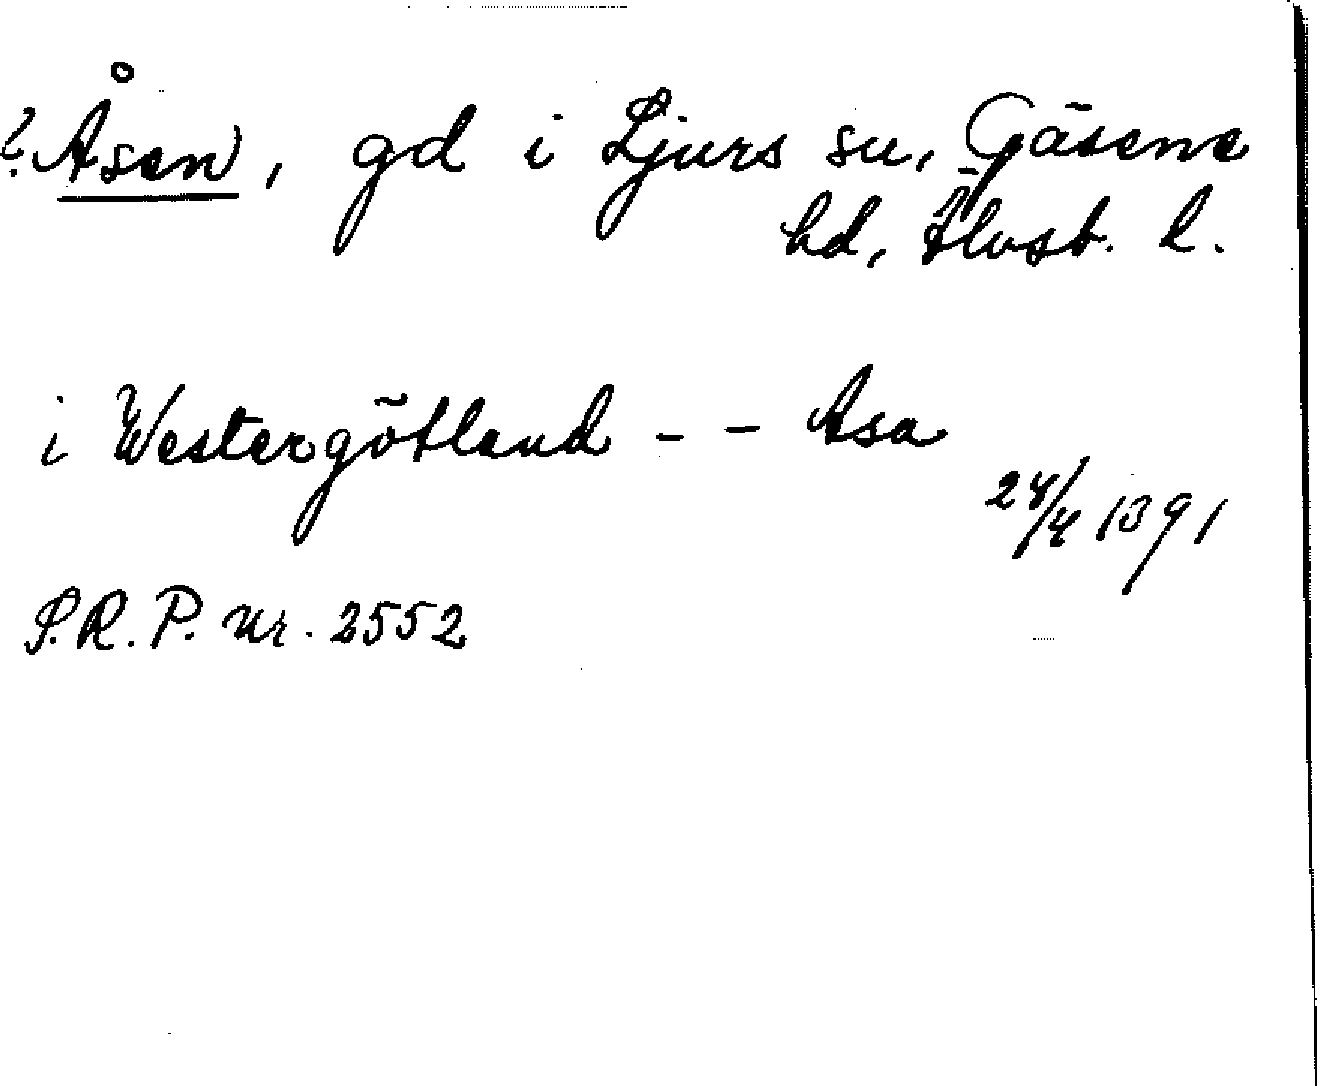 ? Åsen, gd i Ljurs sn, Gäsene
hd, Älvsb. l.
i Westergötland - - Asa
28/4 1391
S.R.P. nr. 2552